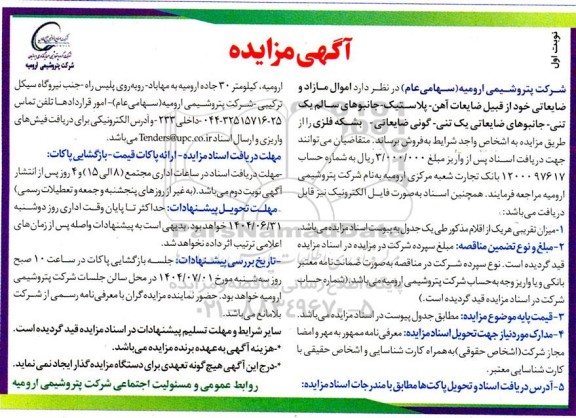 نوبت اول
آگهی مزایده
شرکت پتروشیمی ارومیه
شرکت پتروشیمی ارومیه(سهامی‌عام) در نظر دارد اموال مازاد و
ضایعاتی خود از قبیل ضایعات آهن- پلاستیک جانبوهای سالم یک
تنی- جانبوهای ضایعاتی یک تنی- گونی ضایعاتی - بشکه فلزی را از
طریق مزایده به اشخاص واجد شرایط به فروش برساند. متقاضیان می‌توانند
جهت دریافت اسناد پس از واریز مبلغ ۳/۰۰۰/۰۰۰ ریال به شماره حساب
۱۲۰۰۰۹۷۶۱۷ بانک تجارت شعبه مرکزی ارومیه به‌نام شرکت پتروشیمی
ارومیه مراجعه فرمایند. همچنین اسناد به‌صورت فایل الکترونیک نیز قابل
دریافت می‌باشد:
۱-میزان تقریبی هریک از اقلام مذکور طی یک جدول به پیوست اسناد مزایده می‌باشد
۲-مبلغ و نوع تضمین مناقصه: مبلغ سپرده شرکت در مزایده در اسناد مزایده
قید گردیده است. نوع سپرده شرکت در مناقصه به‌صورت ضمانت‌نامه معتبر
بانکی و یا واریز وجه به حساب شرکت پتروشیمی ارومیه می‌باشد (شماره حساب
شرکت در اسناد مزایده قید گردیده است.)
۳-قیمت پایه موضوع مزایده: مطابق جدول پیوست در اسناد مزایده می‌باشد.
۴-مدارک مورد نیاز جهت تحویل اسناد مزایده: معرفی‌نامه ممهور به مهر و امضا
مجاز شرکت(اشخاص حقوقی) به‌همراه کارت شناسایی و اشخاص حقیقی با
کارت شناسایی معتبر.
۵-آدرس دریافت اسناد و تحویل پاکت‌ها مطابق با مندرجات اسناد مزایده:
ارومیه، کیلومتر ۳۰ جاده ارومیه به مهاباد- روبه‌روی پلیس راه -جنب نیروگاه سیکل
ترکیبی -شرکت پتروشیمی ارومیه(سهامی‌عام)- امور قراردادها تلفن تماس
۲۵-۳۲۵۱۵۷۱۶-۰۴۴ داخلی ۲۳۳- و آدرس الکترونیکی برای دریافت فیش‌های
واریزی و ارسال اسناد Tenders@upc.co.ir می‌باشد.
مهلت دریافت اسناد مزایده - ارائه پاکات قیمت - بازگشایی پاکات:
-مهلت دریافت اسناد در ساعات اداری مجتمع (۸ الی ۱۵) و ۴ روز پس از انتشار
آگهی نوبت دوم می‌باشد. (به غیر از روزهای پنجشنبه و جمعه و تعطیلات رسمی)
مهلت تحویل پیشنهادات: حداکثر تا پایان وقت اداری روز دوشنبه
۱۴۰۴/۰۶/۳۱ خواهد بود. بدیهی است به پیشنهادات واصله پس از زمان‌های
اعلامی ترتیب اثر داده نخواهد شد.
-تاریخ بررسی پیشنهادات: جلسه بازگشایی پاکات در ساعت ۱۰ صبح
روز سه‌شنبه مورخ ۱۴۰۴/۰۷/۰۱ در محل سالن جلسات شرکت پتروشیمی
ارومیه خواهد بود. حضور نماینده مزایده گران با معرفی‌نامه رسمی از شرکت
بلامانع می‌باشد.
سایر شرایط و مهلت تسلیم پیشنهادات در اسناد مزایده قید گردیده است.
*-هزینه آگهی به عهده برنده مزایده می‌باشد.
*-درج این آگهی هیچ گونه تعهدی برای دستگاه مزایده گذار ایجاد نمی نماید.
روابط عمومی و مسئولیت اجتماعی شرکت پتروشیمی ارومیه